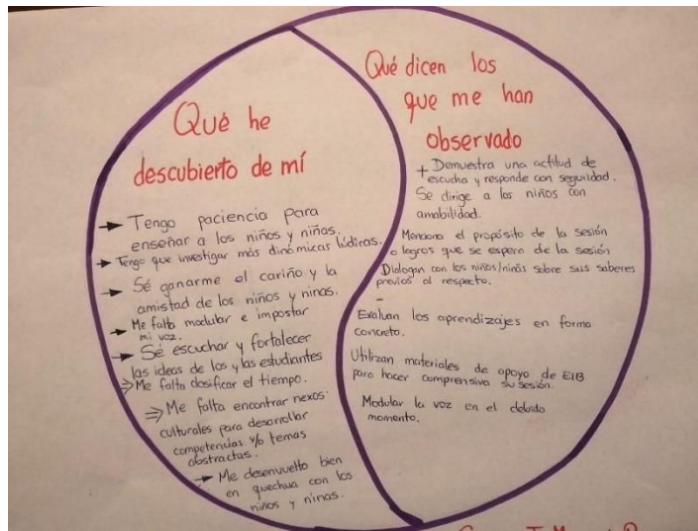 Qué he
descubierto de mí
→ Tengo paciencia para
enseñar a los niños y niñas.
→ Tengo que investigar más dinámicas lúdicas.
→ Sé ganarme el cariño y la
amistad de los niños y ninas.
→ Me falta modular e impostar
mi voz.
→ Sé escuchar y fortalecer
las ideas de los y las estudiantes
⇒ Me falta dosificar el tiempo.
⇒ Me falta encontrar nexos
culturales para desarrollar
competencias y/o temas
abstractas.
→ Me desenvuelvo bien
en quechua con los
niños y ninas.
Qué dicen los
que me han
observado
+ Demuestra una actitud de
escucha y responde con seguridad.
Se dirige a los niños con
amabilidad.
Menciona el propósito de la sesión
o logros que se espera de la sesión
Dialogan con los niños/niñas sobre sus saberes
previos al respecto.
-
Evaluan los aprendizajes en forma
concreta.
Utilizan materiales de apoyo de EIB
para hacer comprensiva su sesión.
Modular la voz en el debido
momento.